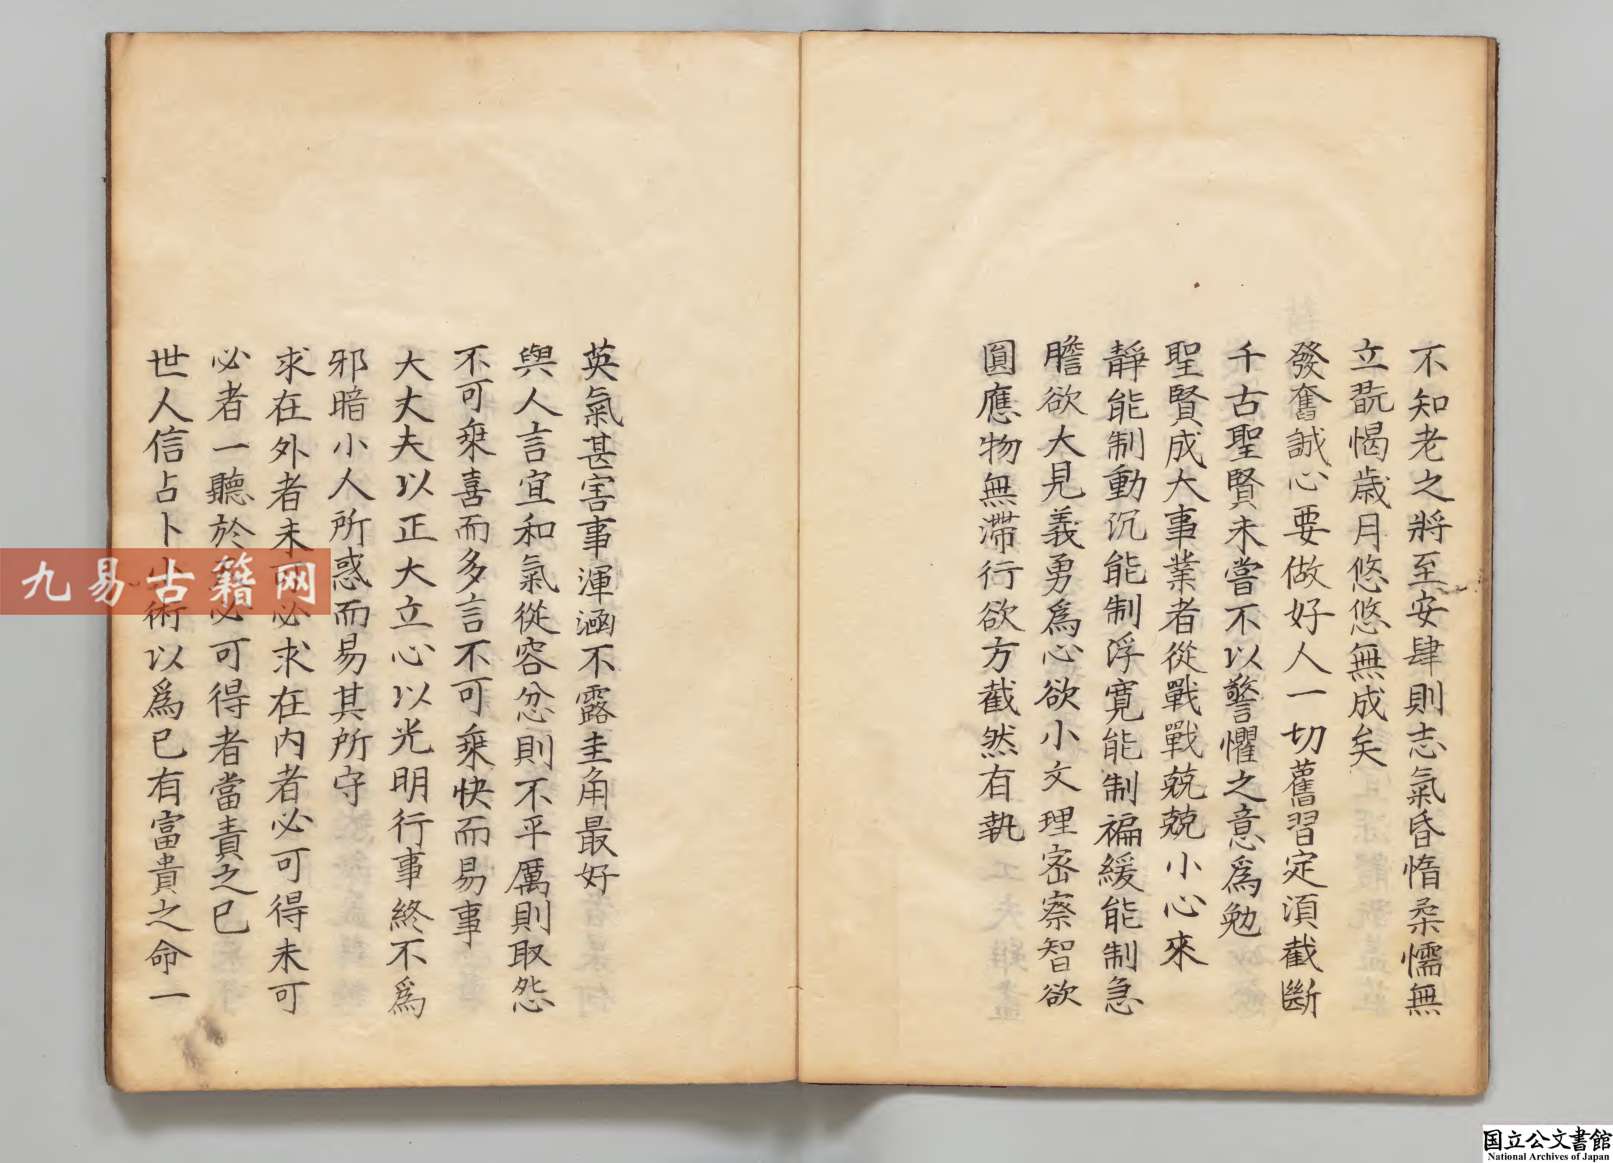 不知老之將至安肆則志氣昏惰柔懦無
立翫愒歲月悠悠無成矣
發奮誠心要做好人一切舊習定須截斷
千古聖賢未嘗不以警懼之意爲勉
聖賢成大事業者從戰戰兢兢小心來
靜能制動沉能制浮寬能制褊緩能制急
膽欲大見義勇爲心欲小文理密察智欲
圓應物無滯行欲方截然有執
英氣甚害事渾涵不露圭角最好
與人言宜和氣從容忿則不平厲則取怨
不可乗喜而多言不可乗快而易事
大丈夫以正大立心以光明行事終不爲
邪暗小人所惑而易其所守
求在外者未可必求在内者必可得未可
必者一聽於必可得者當責之已
世人信占卜術以爲已有富貴之命一
九易古籍网
国立公文書館
National Archives of Japan